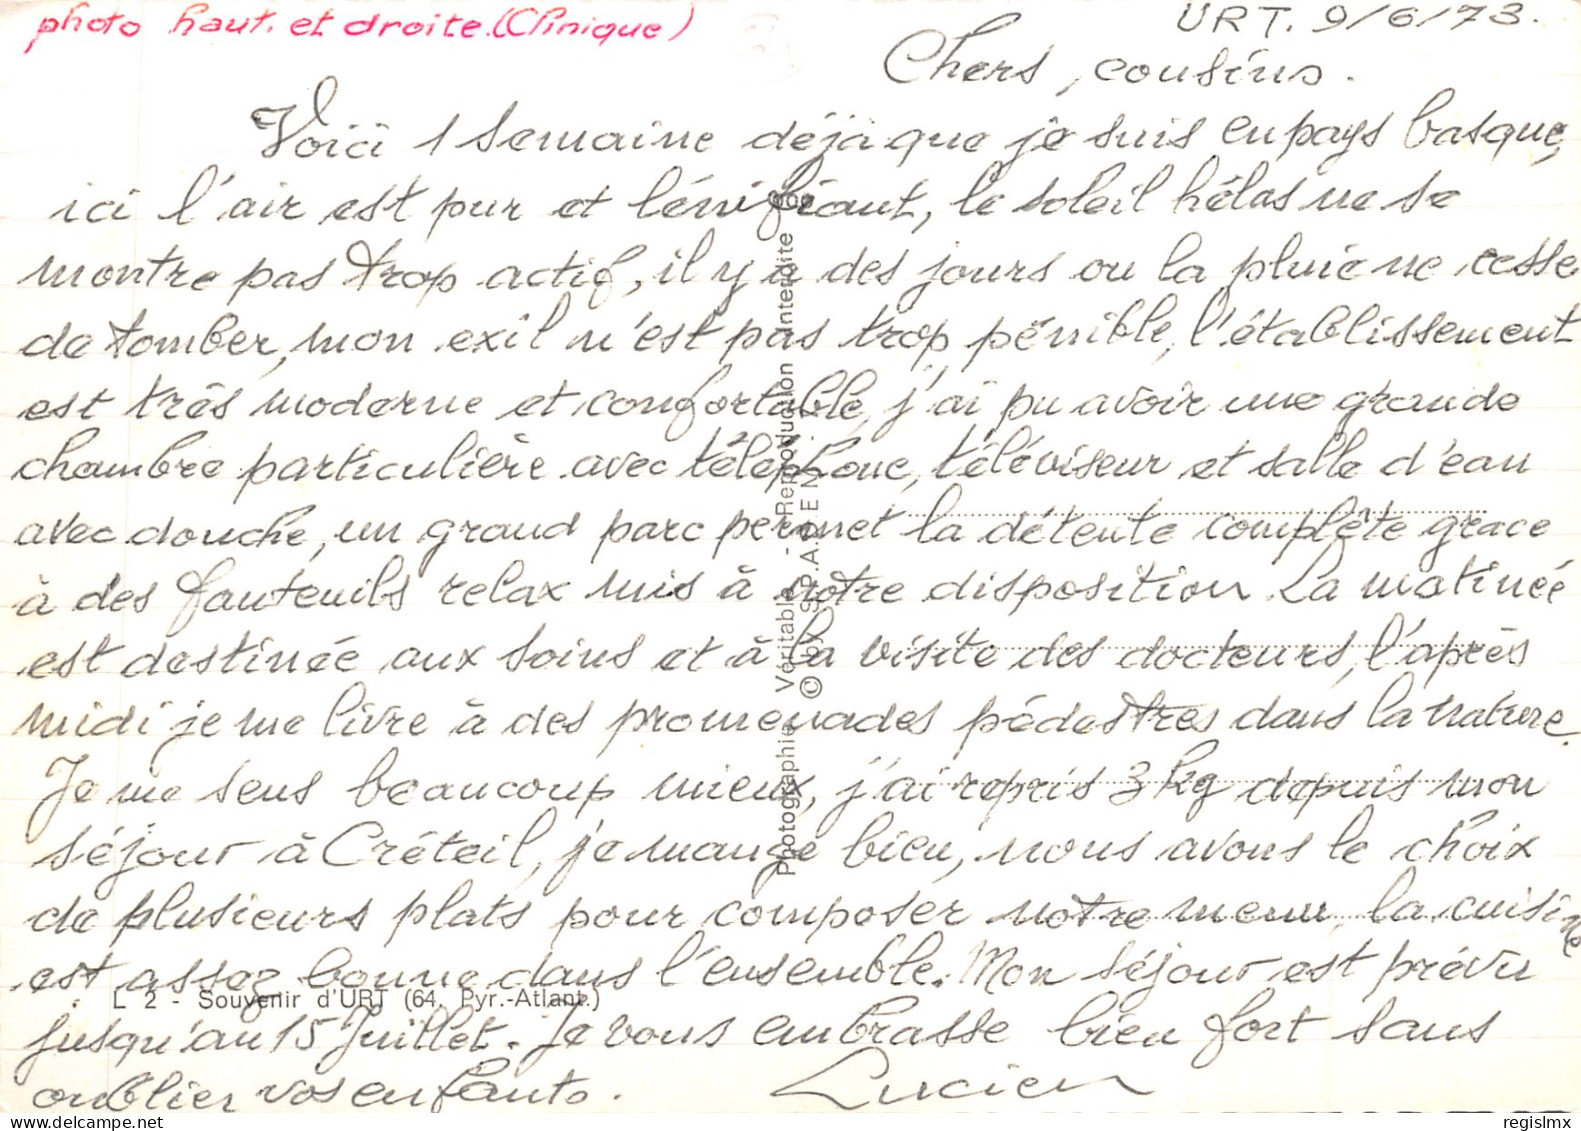 photo haut. et droite. (Clinique)
URT. 9/6/73.
Chers, cousins.
Voici 1 semaine déjà que je suis en pays basque,
ici l'air est pur et lénifiant, le soleil hélas ne se
montre pas trop actif, il y a des jours ou la pluie ne cesse
de tomber, mon exil n'est pas trop pénible, l'établissement
est très moderne et confortable, j'ai pu avoir une grande
chambre particulière avec téléphone, téléviseur et salle d'eau
avec douche, un grand parc permet la détente complête grace
à des fauteuils relax mis à notre disposition. La matinée
est destinée aux soins et à la visite des docteurs, l'après
midi je me livre à des promenades pédestres dans la nature.
Je me sens beaucoup mieux, j'ai repris 3 kg depuis mon
séjour à Créteil, je mange bien, nous avons le choix
de plusieurs plats pour composer notre menu, la cuisine
est assez bonne dans l'ensemble. Mon séjour est prévu
L 2 - Souvenir d'URT (64. Pyr.-Atlant.)
jusqu'au 15 Juillet. Je vous embrasse bien fort sans
oublier vos enfants. Lucien
Photographie Véritable - Reproduction interdite
© by S.P.A.D.E.M.
regislmx